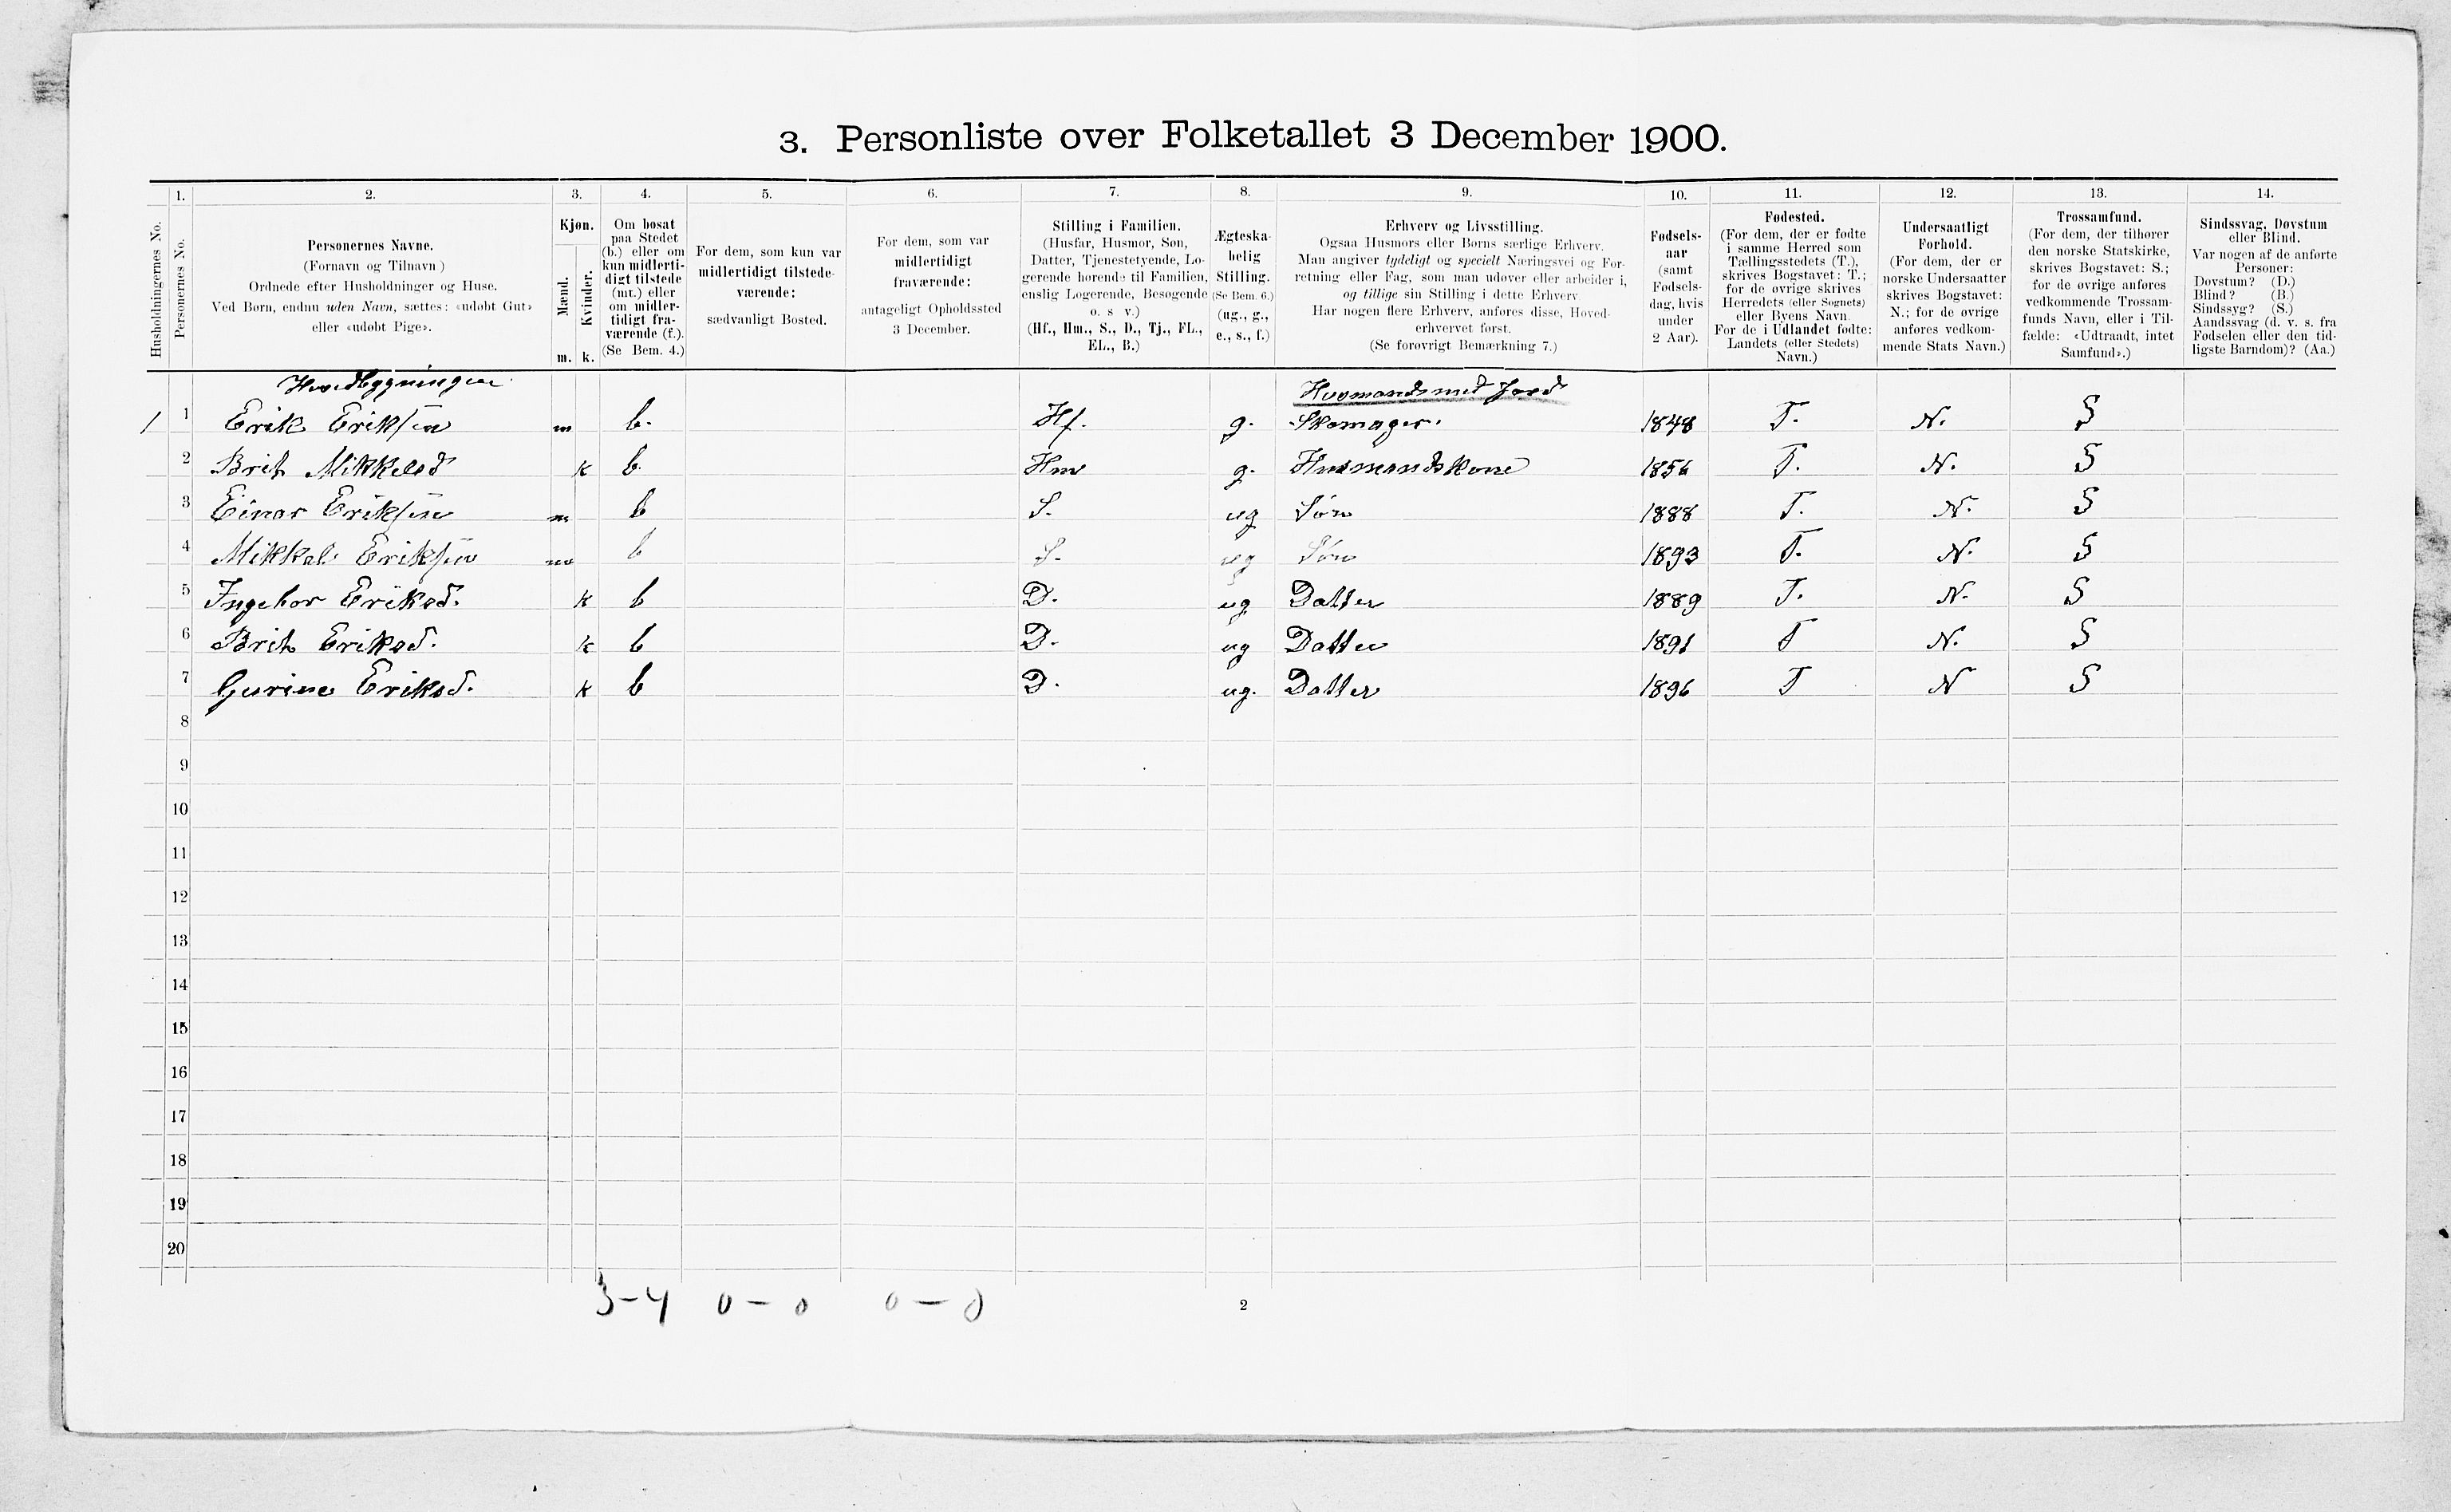 3. Personliste over Folketallet 3 December 1900.
1. 2. 3. 4. 5. 6. 7. 8. 9. 10. 11. 12. 13. 14.
Husholdningernes No.
Personernes No.
Personernes Navne.
(Fornavn og Tilnavn)
Ordnede efter Husholdninger og Huse.
Ved Børn, endnu uden Navn, sættes: «udøbt Gut»
eller «udøbt Pige».
Kjøn.
Mænd.
Kvinder.
m. k.
Om bosat
paa Stedet
(b.) eller om
kun midlerti-
digt tilstede
(mt.) eller
om midler-
tidigt fra-
værende (f.).
(Se Bem. 4.)
For dem, som kun var
midlertidigt tilstede-
værende:
sædvanligt Bosted.
For dem, som var
midlertidigt
fraværende:
antageligt Opholdssted
3 December.
Stilling i Familien.
(Husfar, Husmor, Søn,
Datter, Tjenestetyende, Lo-
gerende hørende til Familien,
enslig Logerende, Besøgende
o. s v.)
(Hf., Hm., S., D., Tj., FL.,
EL., B.)
Ægteska-
belig
Stilling.
(Se Bem. 6.)
(ug., g.,
e., s., f.)
Erhverv og Livsstilling.
Ogsaa Husmors eller Børns særlige Erhverv.
Man angiver tydeligt og specielt Næringsvei og For-
retning eller Fag, som man udøver eller arbeider i,
og tillige sin Stilling i dette Erhverv
Har nogen flere Erhverv, anføres disse, Hoved-
erhvervet først.
(Se forøvrigt Bemærkning 7.)
Fødsels-
aar
(samt
Fødsels-
dag, hvis
under
2 Aar).
Fødested.
(For dem, der er fødte
i samme Herred som
Tællingsstedets (T.),
skrives Bogstavet: T.;
for de øvrige skrives
Herredets (eller Sognets)
eller Byens Navn.
For de i Udlandet fødte:
Landets (eller Stedets)
Navn.)
Undersaatligt
Forhold.
(For dem, der er
norske Undersaatter
skrives Bogstavet:
N.; for de øvrige
anføres vedkom-
mende Stats Navn.)
Trossamfund.
(For dem, der tilhører
den norske Statskirke,
skrives Bogstavet: S.;
for de øvrige anføres
vedkommende Trossam-
funds Navn, eller i Til-
fælde: «Udtraadt, intet
Samfund».)
Sindssvag, Døvstum
eller Blind.
Var nogen af de anførte
Personer:
Døvstum? (D.)
Blind? (B.)
Sindssyg? (S.)
Aandssvag (d. v. s. fra
Fødselen eller den tid-
ligste Barndom)? (Aa.)
Hovedbygningen Husmand med Jord
1 1 Erik Eriksen m b. Hf. g. Skomager. 1848 T. N. S
2 Brit Mikkelsd k b. Hm g. Husmandskone 1856 T. N. S
3 Einar Eriksen m b S. ug Søn 1888 T. N. S
4 Mikkel Eriksen m b S. ug Søn 1893 T. N. S
5 Ingebor Eriksd. k b D. ug Datter 1889 T. N. S
6 Brit Eriksd. k b D. ug Datter 1891 T N. S
7 Gurine Eriksd. k b D. ug. Datter 1896 T N S
8
9
10
11
12
13
14
15
16
17
18
19
20
3-4 0-0 0-0
2